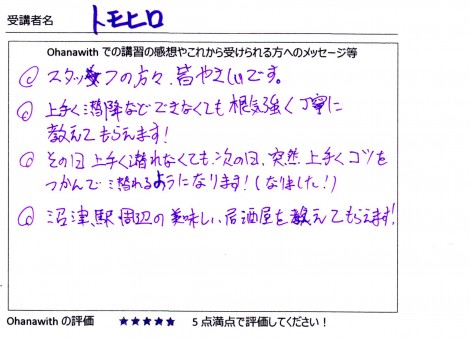 受講者名 トモヒロ
Ohanawith での講習の感想やこれから受けられる方へのメッセージ等
◎ スタッフの方々、皆やさしいです。
◎ 上手く潜降などできなくても根気強く丁寧に
教えてもらえます!
◎ その日上手く潜れなくても、次の日、突然上手くコツを
つかんで潜れるようになります!(なりました!)
◎ 沼津駅周辺の美味しい居酒屋を教えてもらえます!
Ohanawith の評価 ★★★★★ 5点満点で評価してください!